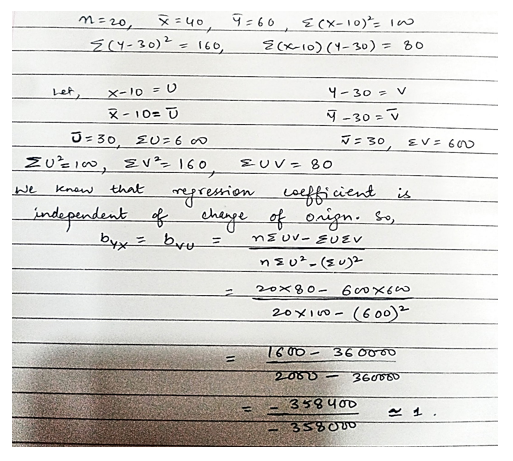 n=20, x̄=40, ȳ=60, Σ(x-10)²= 100
Σ(y-30)² = 160, Σ(x-10)(y-30) = 80
Let, x-10 = U y-30 = V
x̄-10= Ū ȳ-30 = V̄
Ū=30, ΣU=600 V̄=30, ΣV=600
ΣU²=100, ΣV²=160, ΣUV= 80
We know that regression coefficient is
independent of change of orign. So,
b_yx = b_vu = nΣUV-ΣUΣV / nΣU²-(ΣU)²
= 20×80 - 600×600 / 20×100-(600)²
= 1600 - 360000 / 2000 - 360000
= -358400 / -358000 ≃ 1.